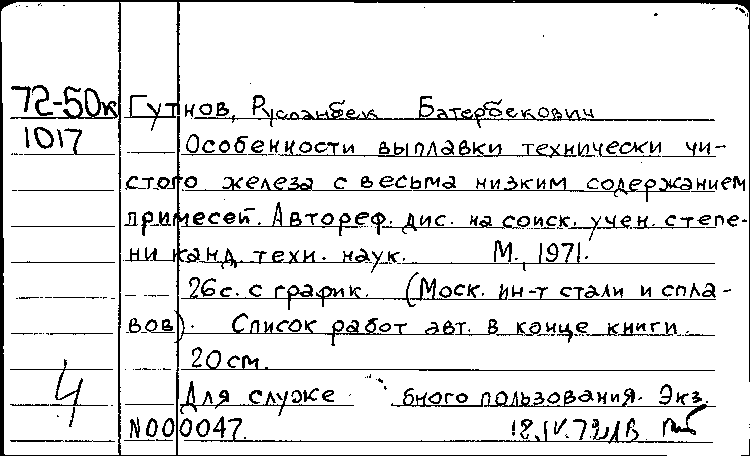 72-50к Гутнов, Русланбек Батербекович
1017 Особенности выплавки технически чи-
стого железа с весьма низким содержанием
примесей. Автореф. дис. на соиск. учен. степе-
ни канд. техн. наук. М., 1971.
26с. с график. (Моск. ин-т стали и спла-
вов). Список работ авт. в конце книги.
20см.
4 Для служе бного пользования. Экз.
N000047. 18.IV.72